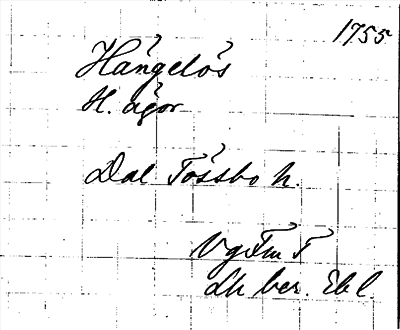 1755
Hängelös
H. ägor
Dal Tössbo h.
VgFmT
Lh ber. Ek l.